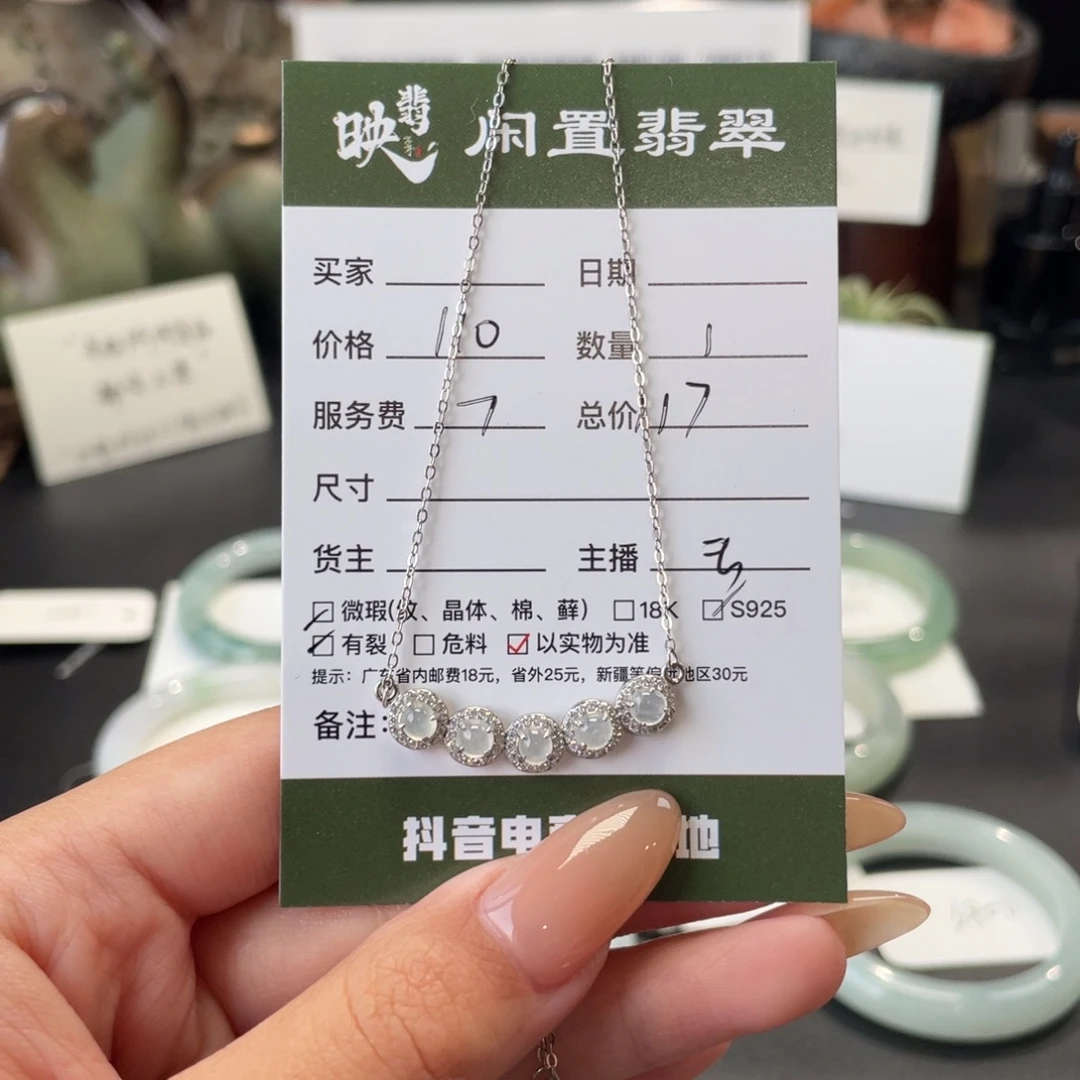 映翡 闲置翡翠
买家 日期
价格 10 数量 1
服务费 7 总价 17
尺寸
货主 主播
微瑕(纹、晶体、棉、藓) 18K S925
有裂 危料 以实物为准
提示：广东省内邮费18元，省外25元，新疆等偏远地区30元
备注：
抖音电 地